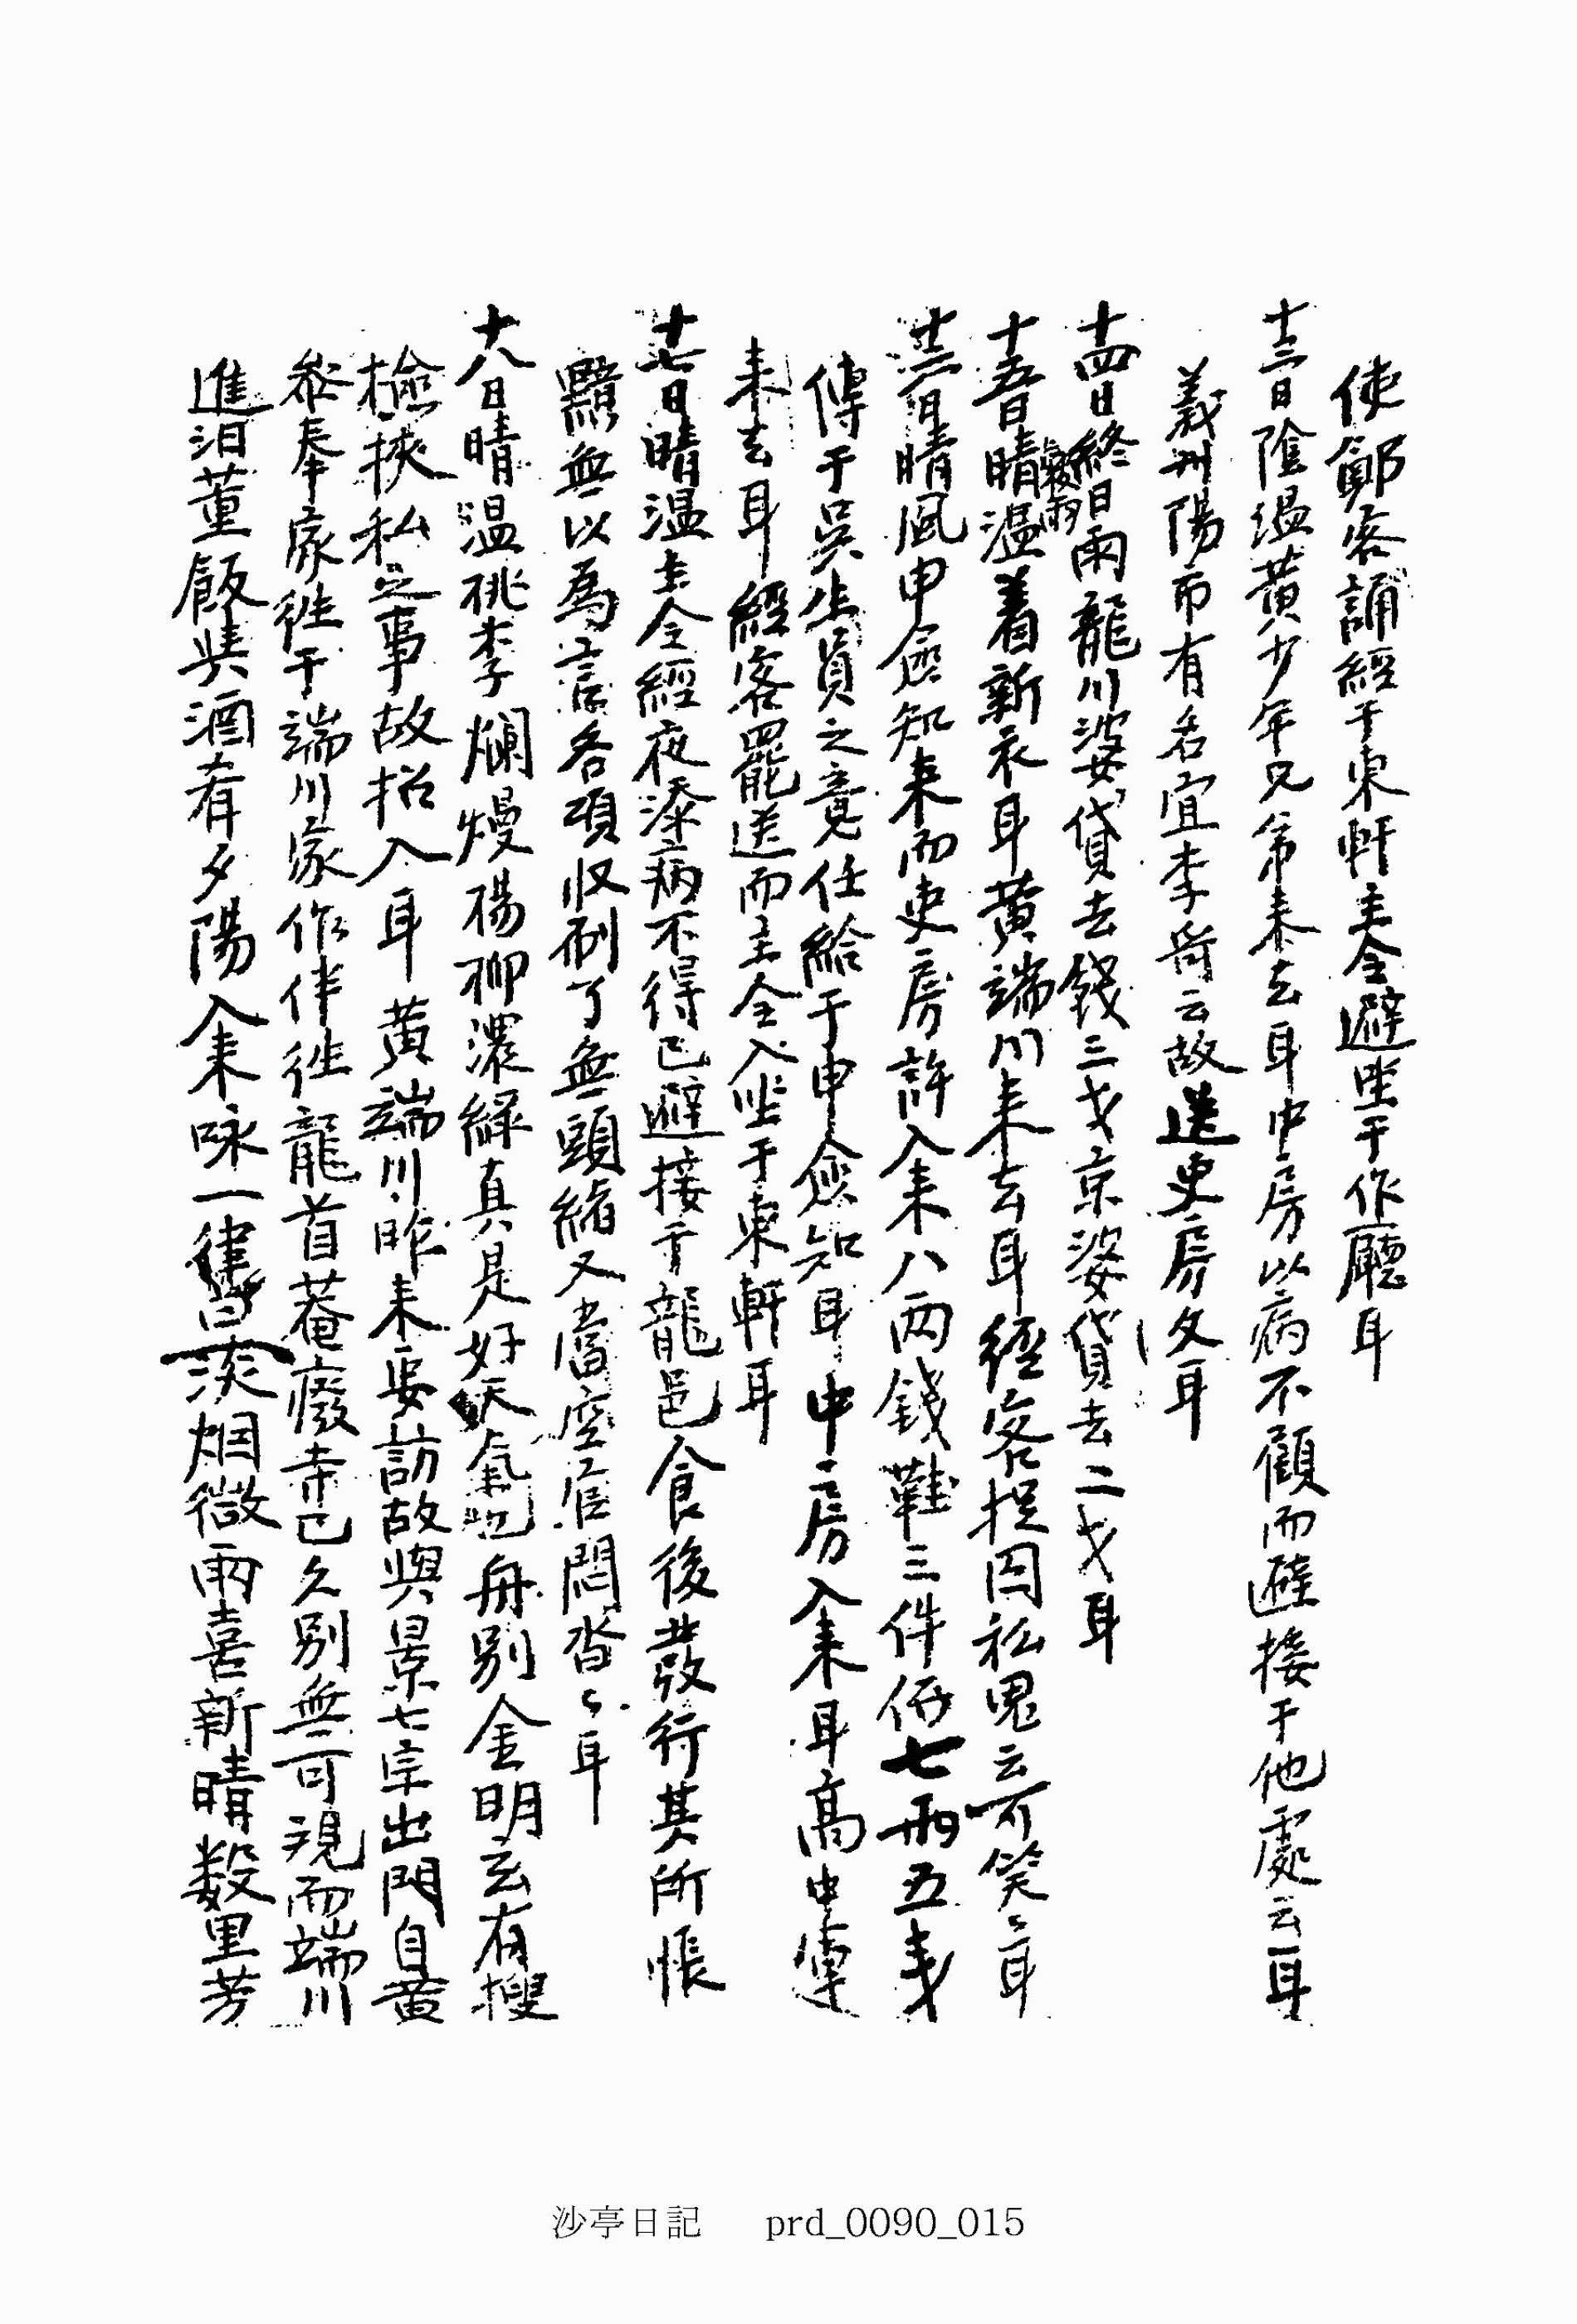 使鄭客誦經于東軒主仝避坐于作廳耳
十三日陰温黃少年兄弟来去耳中房以病不顧而避接于他處云耳
義州陽市有名宜李奇云故送吏房耳
十四日終日雨龍川婆貸去錢三戔京婆貸去二戔耳
十五日晴温着新衣耳黃端川来去耳經客捉囚私鬼云可笑〻耳
晴風申僉知来而吏房許入来八兩錢鞋三件価七兩五戔
傳于吳生員之意任給于申僉知耳中房入来耳高中連
来去耳經客罷送而主仝入坐于東軒耳
十七日晴温主仝經夜添病不得已避接于龍邑食後發行其所悵
黯無以爲言各項収刷了無頭緖又當空官悶沓〻耳
十八日晴温桃李爛熳楊柳濃綠真是好天氣也舟別金明玄有搜
檢挾私之事故招入耳黃端川昨来要訪故與景七宗出門自黃
參奉家徃于端川家作伴徃龍首菴癈寺已久別無可視而端川
進泪董飯與酒肴夕陽入来咏一律曰淡烟微雨喜新晴数里芳
沙亭日記 prd_0090_015